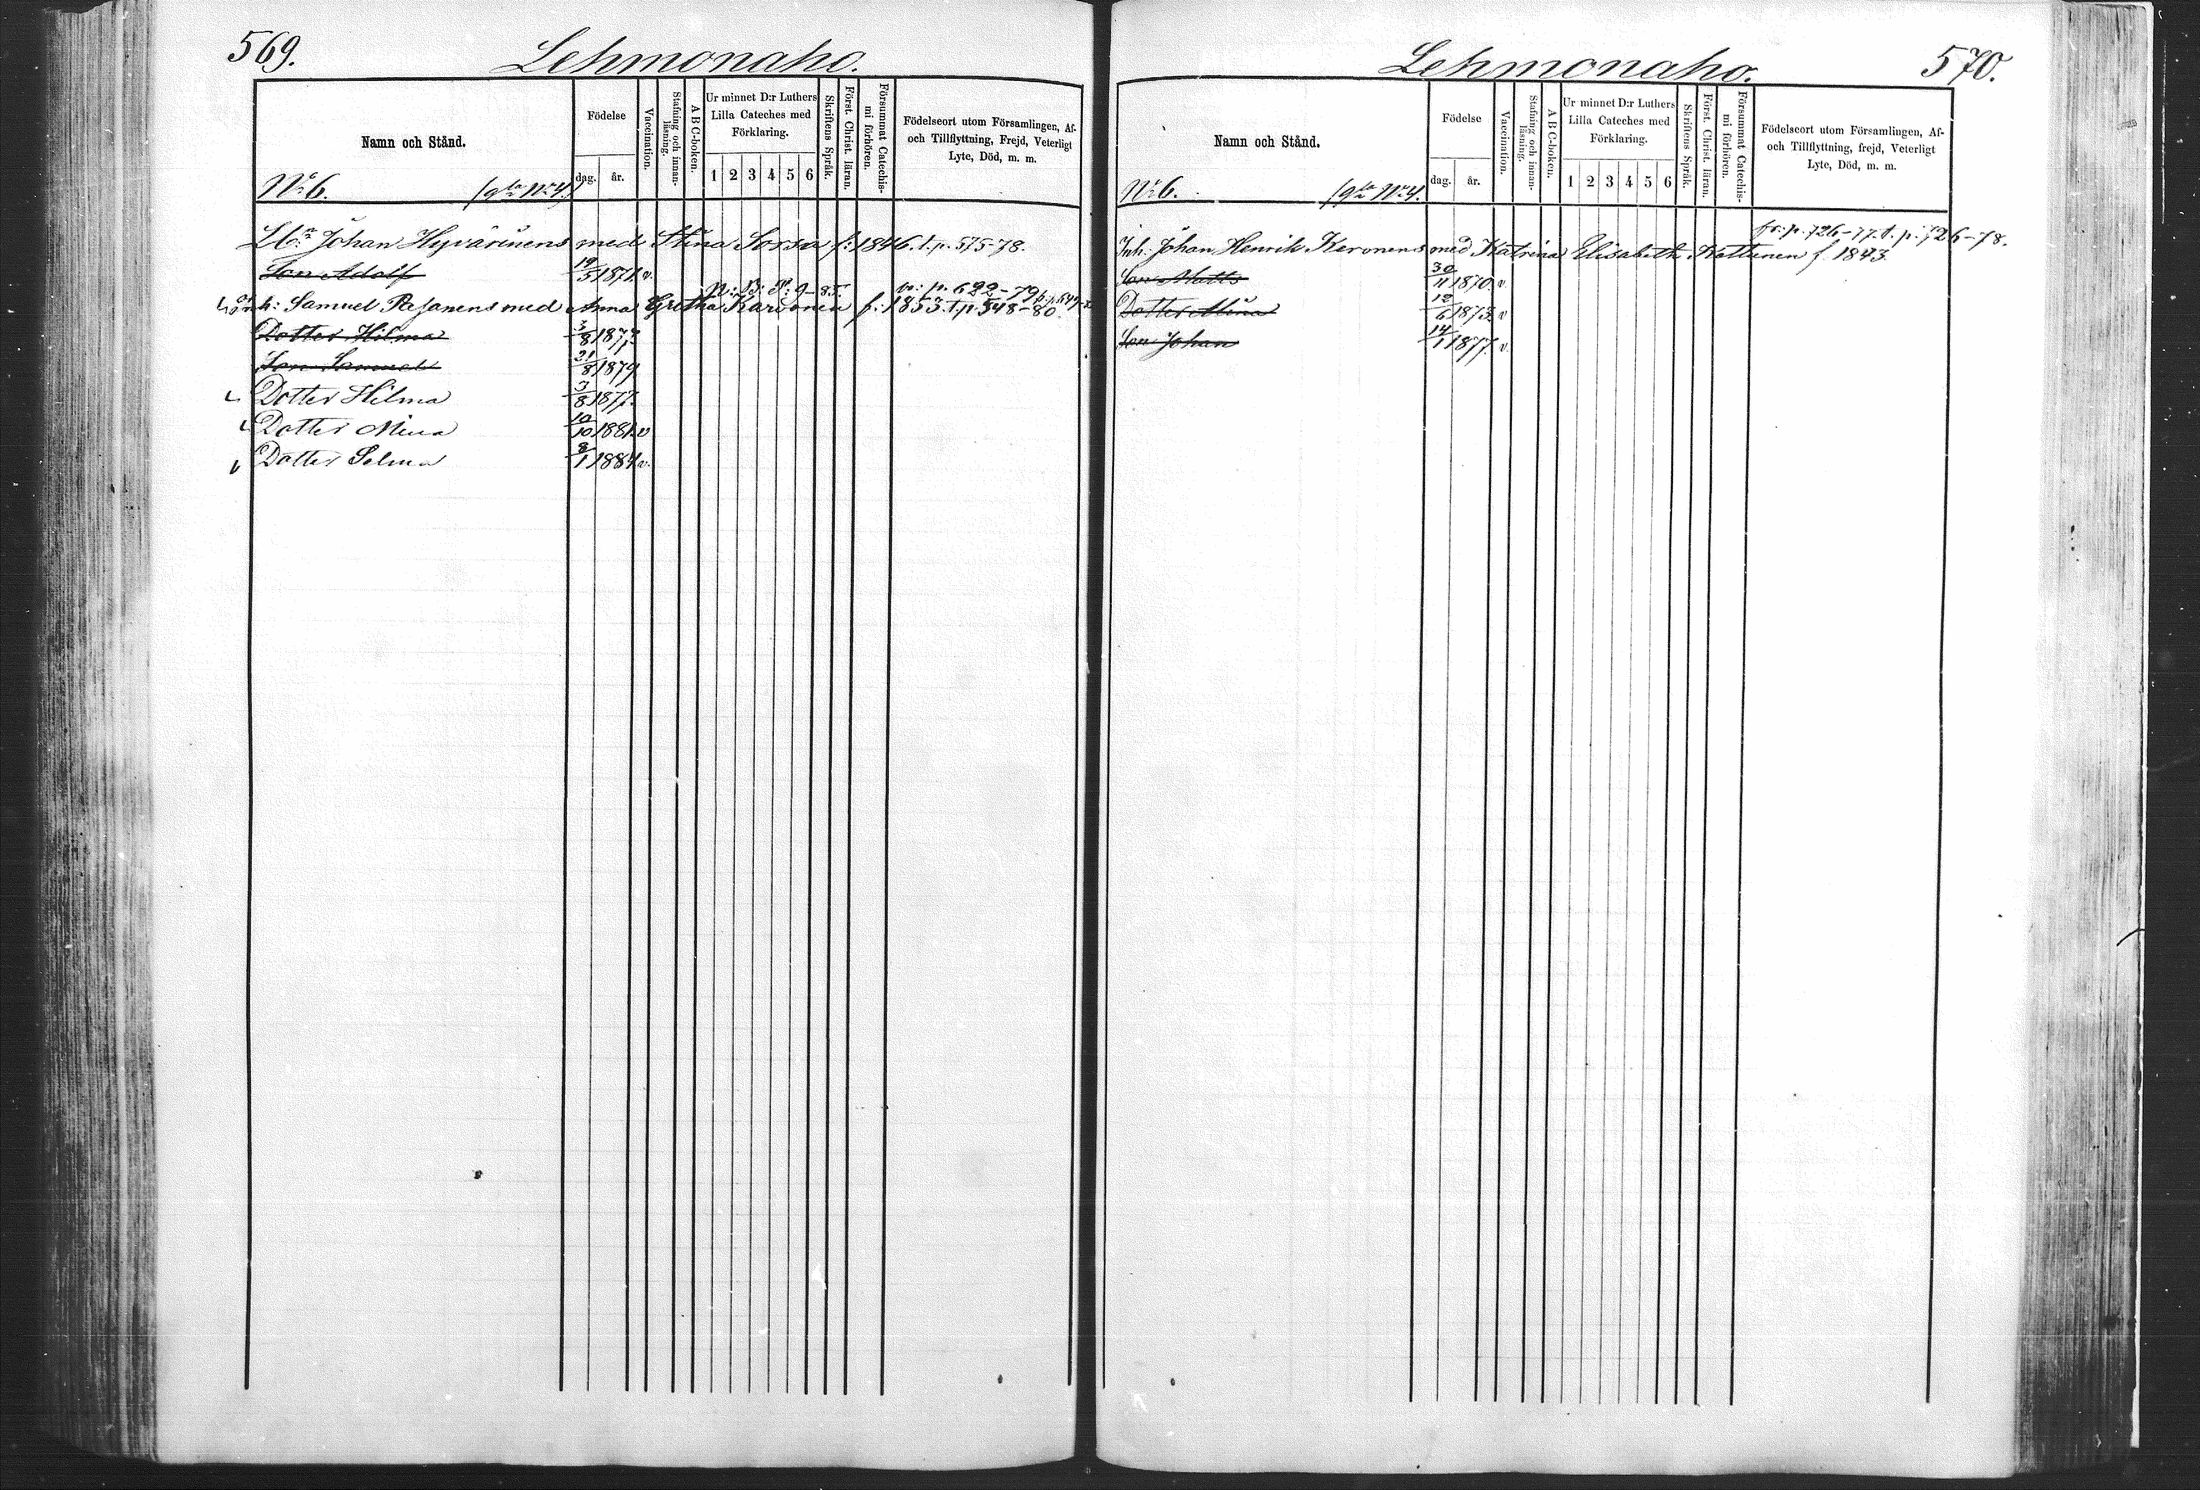 569.
Lehmonaho.
Namn och Stånd.
Födelse
dag.
år.
Vaccination.
Stafning och innan-
läsning.
A B C-boken.
Ur minnet D:r Luthers
Lilla Cateches med
Förklaring.
1 2 3 4 5 6
Skriftens Språk.
Först. Christ. läran.
Försummat Catechis-
mi förhören.
Födelseort utom Församlingen, Af-
och Tillflyttning, Frejd, Veterligt
Lyte, Död, m. m.
No 6.
Johan Hyvärinens med Stina Sorsa f: 1846. t. p. 575-78.
Son Adolf 19/5 1871. v.
fr: p. 622-79
Samuel Pajanens med Anna Gretha Karvonen f. 1853. t. p. 548-80.
Dotter Hilma 3/8 1877.
Son Samuel 21/8 1879
Dotter Hilma 3/8 1877.
Dotter Mina 10/10 1881. v
Dotter Selma 8/1 1884 v.
Lehmonaho.
570.
Namn och Stånd.
Födelse
dag.
år.
Vaccination.
Stafning och innan-
läsning.
A B C-boken.
Ur minnet D:r Luthers
Lilla Cateches med
Förklaring.
1 2 3 4 5 6
Skriftens Språk.
Först. Christ. läran.
Försummat Catechis-
mi förhören.
Födelseort utom Församlingen, Af-
och Tillflyttning, frejd, Veterligt
Lyte, Död, m. m.
No 6.
fr. p. 726-77. t. p. 726-78.
Inh. Johan Henrik Keronens med Katrina Elisabeth f. 1843.
Son Matts 30/11 1870. v
Dotter Mina 12/6 1873. v
Son Johan 14/1 1877. v.